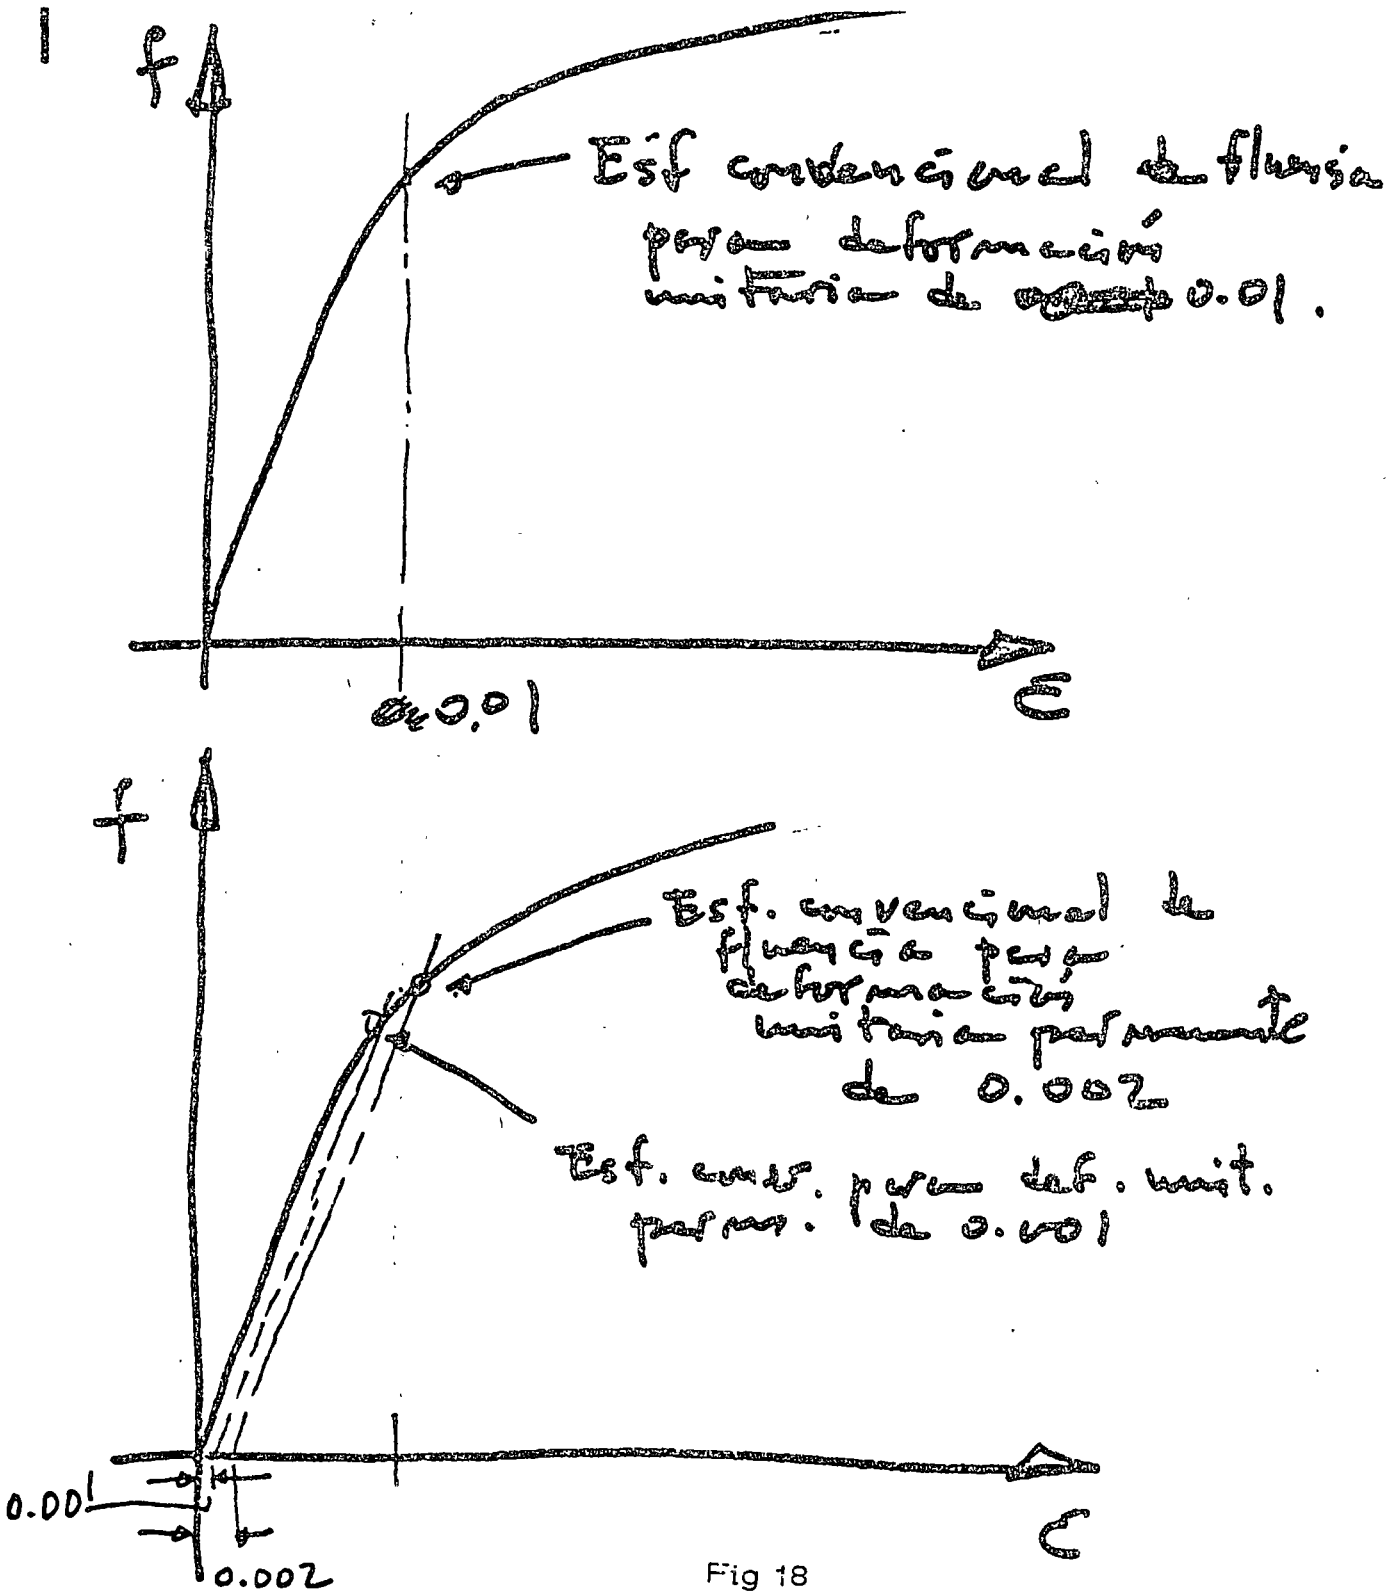 f
Esf convencional de fluencia
para deformación
unitaria de 0.01.
0.01
ε
f
Esf. convencional de
fluencia para
deformación
unitaria permanente
de 0.002
Esf. conv. para def. unit.
perm. de 0.001
0.001
0.002
ε
Fig 18